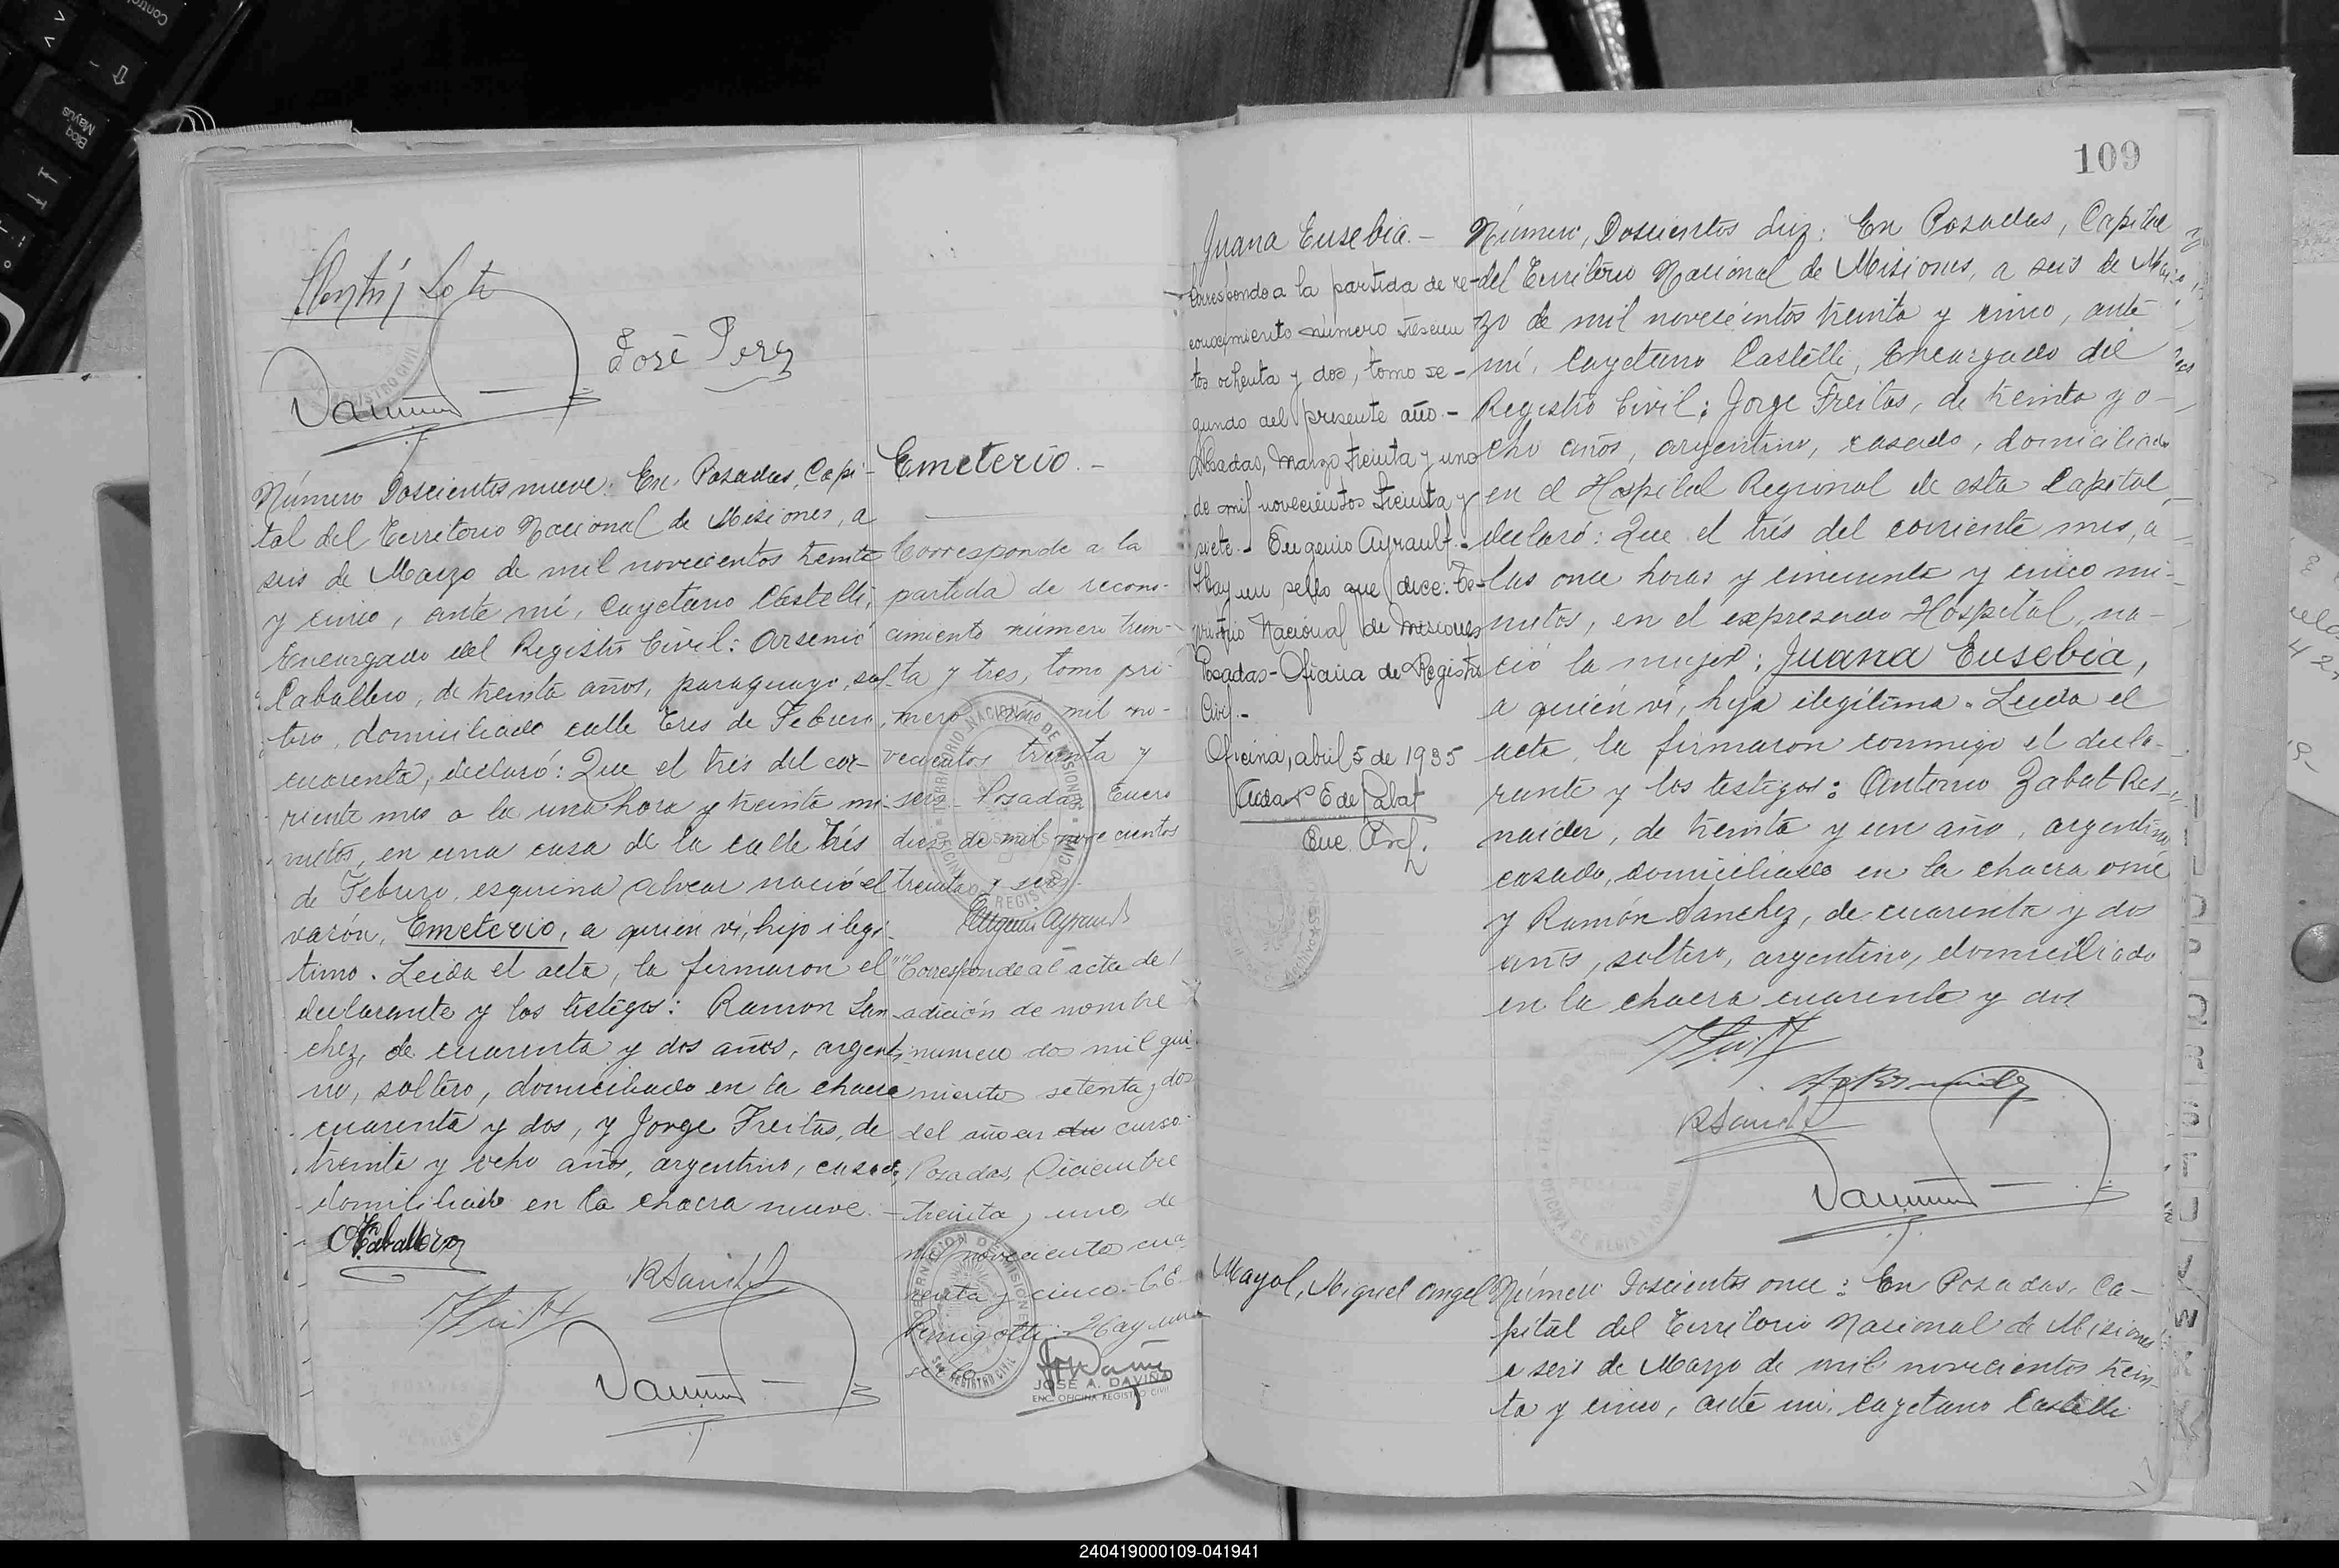 José Perez
Número Doscientos nueve: En Posadas, Capi-
tal del Territorio Nacional de Misiones, a
seis de Marzo de mil novecientos treinta
y cinco, ante mí, Cayetano Castelli,
Encargado del Registro Civil: Arsenio
Caballero, de treinta años, paraguayo, sol-
tero, domiciliado calle Tres de Febrero,
cuarenta, declaró: Que el trés del cor-
riente mes a la una hora y treinta mi-
nutos, en una casa de la calle trés
de Febrero, esquina Alvear nació el
varón, Emeterio, a quien ví, hijo ilegi-
timo. Leida el acta, la firmaron el
declarante y los testigos: Ramon San
chez, de cuarenta y dos años, argenti
no, soltero, domiciliado en la chacra
cuarenta y dos, y Jorge Freitas, de
treinta y ocho años, argentino, casado,
domiciliado en la chacra nueve.-
ACaballero
RSanchez
Emeterio.-
Corresponde a la
partida de recono-
cimiento número trein-
ta y tres, tomo pri-
mero año mil no-
vecientos treinta y
seis - Posadas Enero
diez de mil novecientos
treinta y seis.-
Eugenio Ayrault
"Corresponde al acta de
adición de nombre
numero dos mil qui-
nientos setenta y dos
del año en du curso.
Posadas, Diciembre
treinta y uno, de
mil novecientos cua-
renta y cinco.- C.E.
Hay un
sello
TERRITORIO NACIONAL DE MISIONES
OFICINA DE REGISTRO CIVIL
GOBERNACION DE MISIONES
REGISTRO CIVIL
JOSÉ A. DAVIÑA
ENC. OFICINA REGISTRO CIVIL
109
Juana Eusebia.-
Corresponde a la partida de re-
conocimiento número trescien
tos ochenta y dos, tomo se-
gundo del presente año.-
Posadas, Marzo treinta y uno
de mil novecientos treinta y
siete.- Eugenio Ayrault.-
Hay un sello que dice: Te-
rritorio Nacional de Misiones
Posadas-Oficina de Registro
Civil.-
Oficina, abril 5 de 1935
Enc. Arch.
Número, Doscientos diez: En Posadas, Capital
del Territorio Nacional de Misiones, a seis de Mar-
zo de mil novecientos treinta y cinco, ante
mí, Cayetano Castelli, Encargado del
Registro Civil: Jorge Freitas, de treinta y o-
cho años, argentino, casado, domiciliado
en el Hospital Regional de esta Capital,
declaró: Que el trés del corriente mes, a
las once horas y cincuenta y cinco mi-
nutos, en el expresado Hospital, na-
ció la mujer: Juana Eusebia,
a quién ví, hija ilegítima. Leida el
acta, la firmaron conmigo el decla-
rante y los testigos: Antonio Zabat Res-
naider, de treinta y un año, argentino
casado, domiciliado en la chacra once
y Ramón Sanchez, de cuarenta y dos
años, soltero, argentino, domiciliado
en la chacra cuarenta y dos
RSanchez
Mayol, Miguel Angel
Número Doscientos once: En Posadas, Ca-
pital del Territorio Nacional de Misiones
a seis de Marzo de mil novecientos trein-
ta y cinco, ante mi, Cayetano Castelli
240419000109-041941